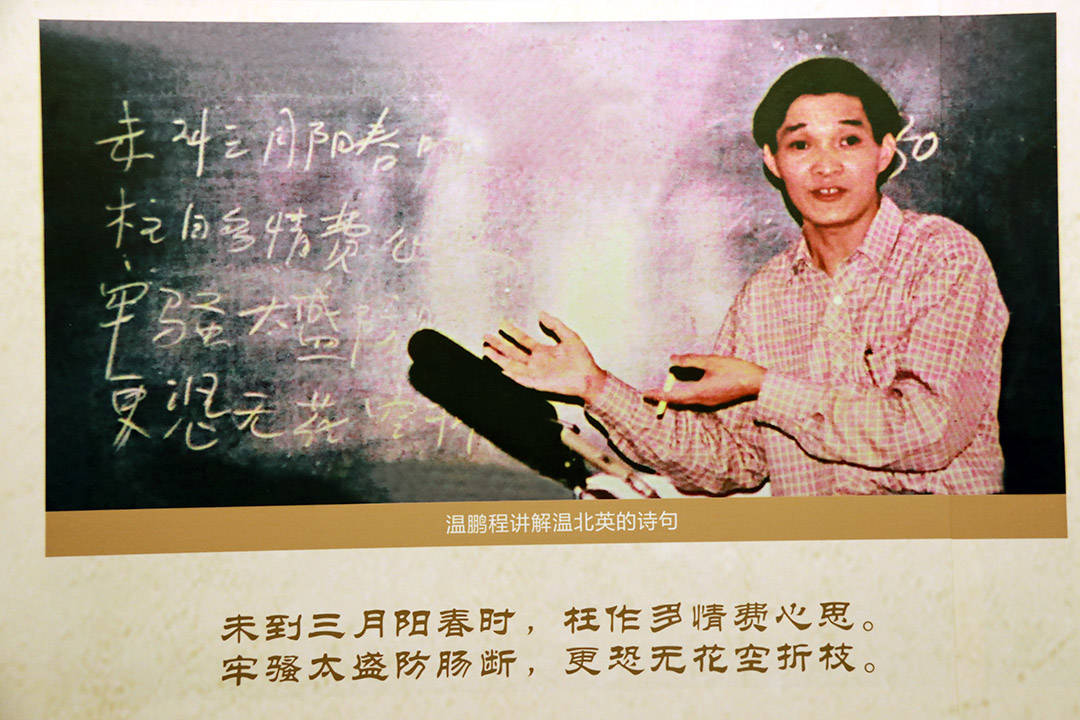 未到三月阳春时
枉自多情费心
牢骚太盛防
更恐无花空折
温鹏程讲解温北英的诗句
未到三月阳春时，枉作多情费心思。
牢骚太盛防肠断，更恐无花空折枝。